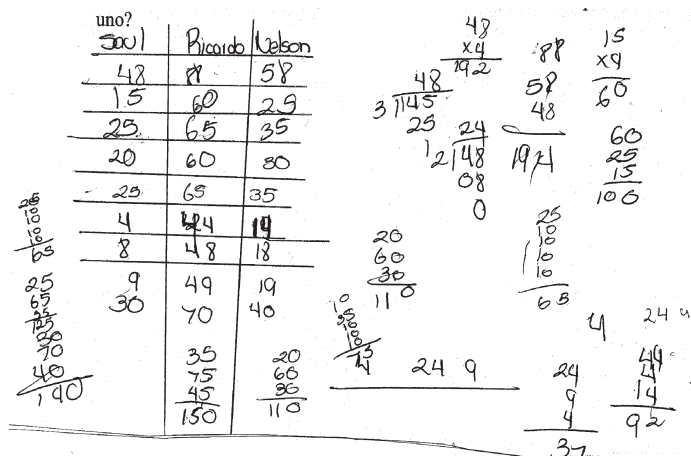 uno?
Saul Ricardo Nelson
48 88 58
15 60 25
25 65 35
20 60 30
25 65 35
4 44 14
8 48 18
9 49 19
30 70 40
35
75
45
150
20
60
30
110
25
10
10
10
65
25
65
35
125
30
70
40
140
48
x4
192
48
3 145
25
24
12 148
08
0
88
58
48
194
15
x4
60
60
25
15
100
20
60
30
110
25
10
10
10
65
4 24 9
24
9
4
37
4 24 4
44
4
14
92